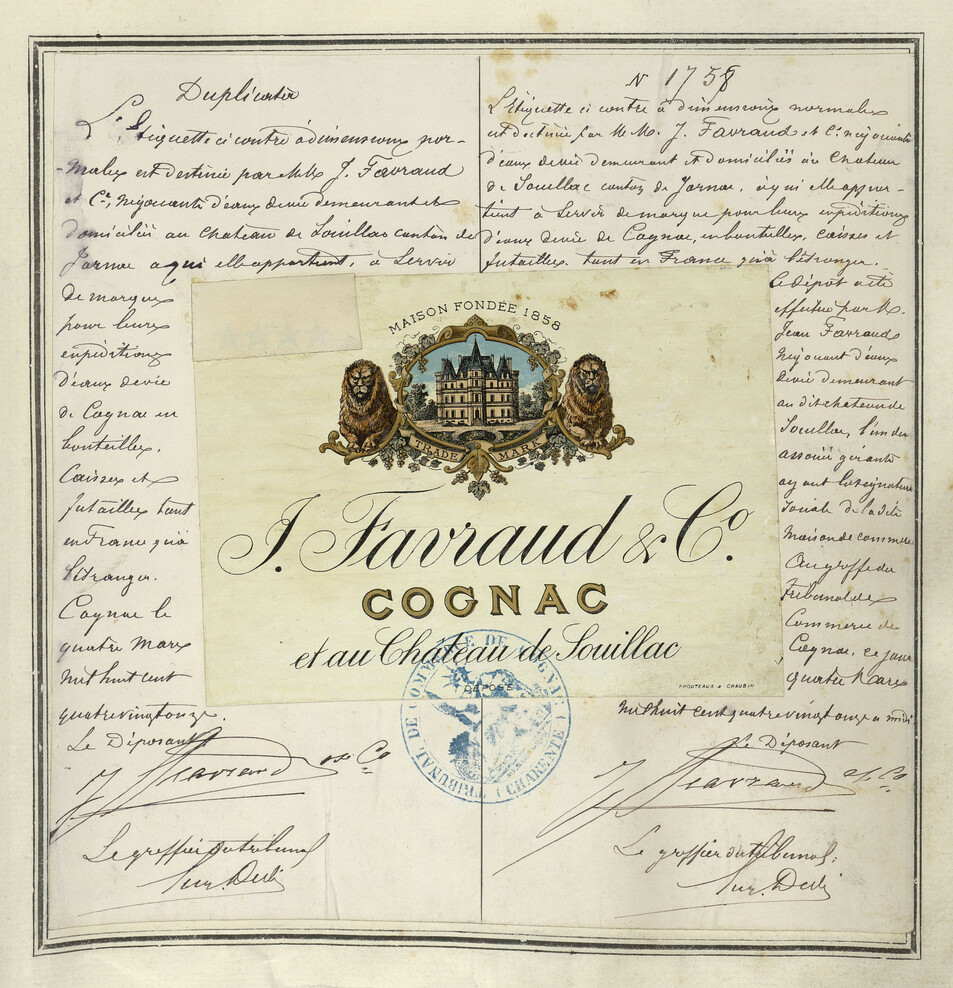 Duplicata
L'Etiquette ci contre à dimensions nor-
-males est destinée par MMs J. Favraud
et Cie, négociants d'eaux de vie demeurant et
domiciliés au chateau de Souillac canton de
Jarnac a qui elle appartient, à servir
de marque
pour leurs
expéditions
d'eaux de vie
de Cognac en
bouteilles,
Caisses et
futailles tant
en France qu'à
l'étranger.
Cognac le
quatre Mars
mil huit cent
quatre vingt onze.
Le Déposant
J. Favraud & Co
Le greffier du tribunal
N 1758
L'Etiquette ci contre à dimensions normales
est destinée par M.M. J. Favraud et Cie négociants
d'eaux de vie demeurant et domiciliés au Chateau
de Souillac canton de Jarnac, à qui elle appar-
tient à servir de marque pour leurs expéditions
d'eaux de vie de Cognac, en bouteilles, caisses et
futailles tant en France qu'à l'étranger.
Le dépot a été
effectué par M.
Jean Favraud
négociant d'eaux
de vie demeurant
au dit chateau de
Souillac, l'un des
associé gerants
ayant la signature
sociale de la dite
Maison de commerce
Au greffe du
Tribunal de
Commerce de
Cognac, ce jour
quatre Mars
mil huit cent quatre vingt onze a midi
Le Déposant
J. Favraud & Co
Le greffier du tribunal:
MAISON FONDÉE 1858
TRADE MARK
J. Favraud & Co.
COGNAC
et au Château de Souillac
DÉPOSÉ
PROUTEAUX & CHAUBIN
TRIBUNAL DE COMMERCE DE COGNAC (CHARENTE)